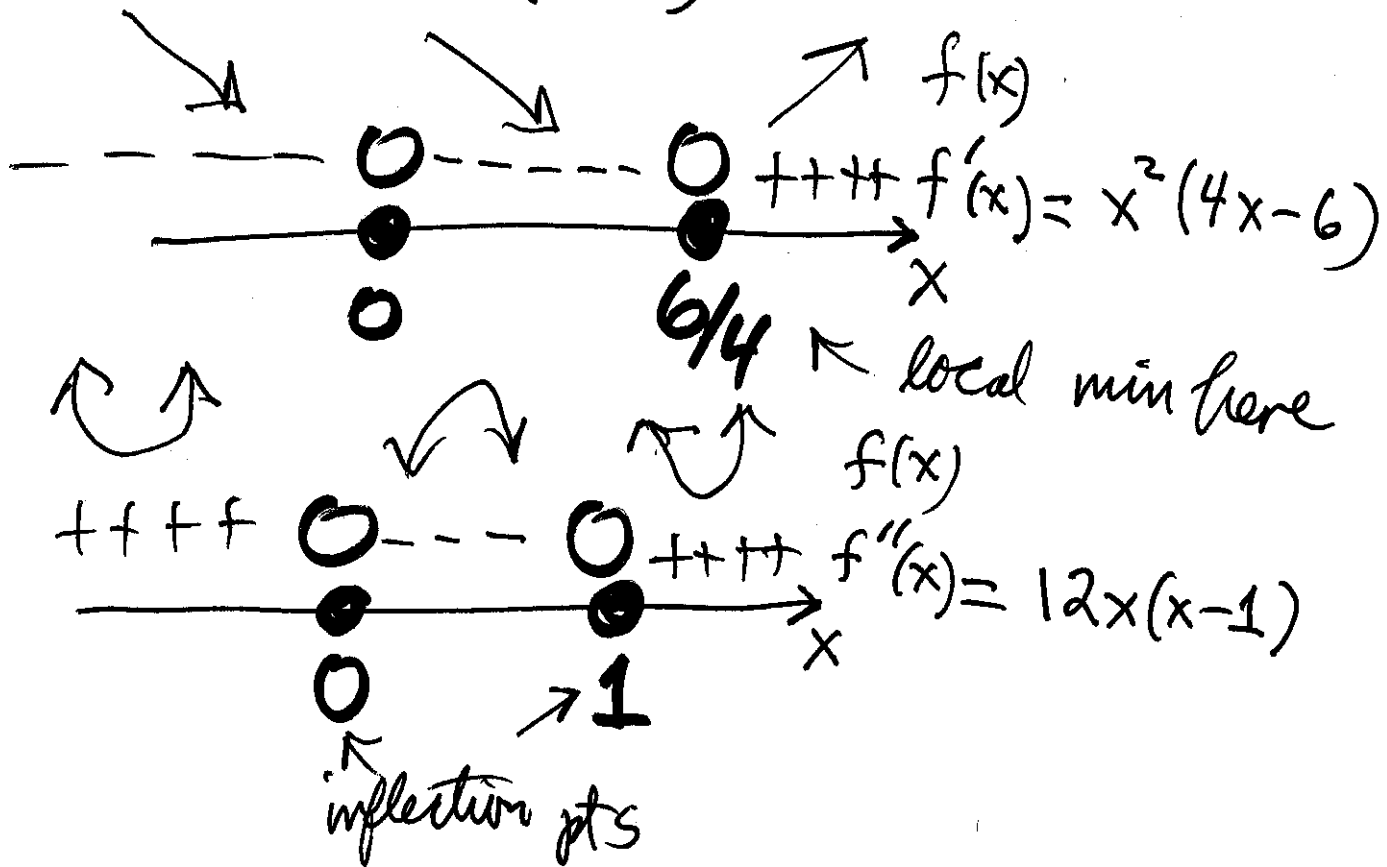 f(x)
— — — — 0 - - - - - 0 ++++ f'(x) = x²(4x-6)
x
0 6/4 local min here
f(x)
++++ 0 - - - 0 ++++ f''(x) = 12x(x-1)
x
0 1
inflection pts